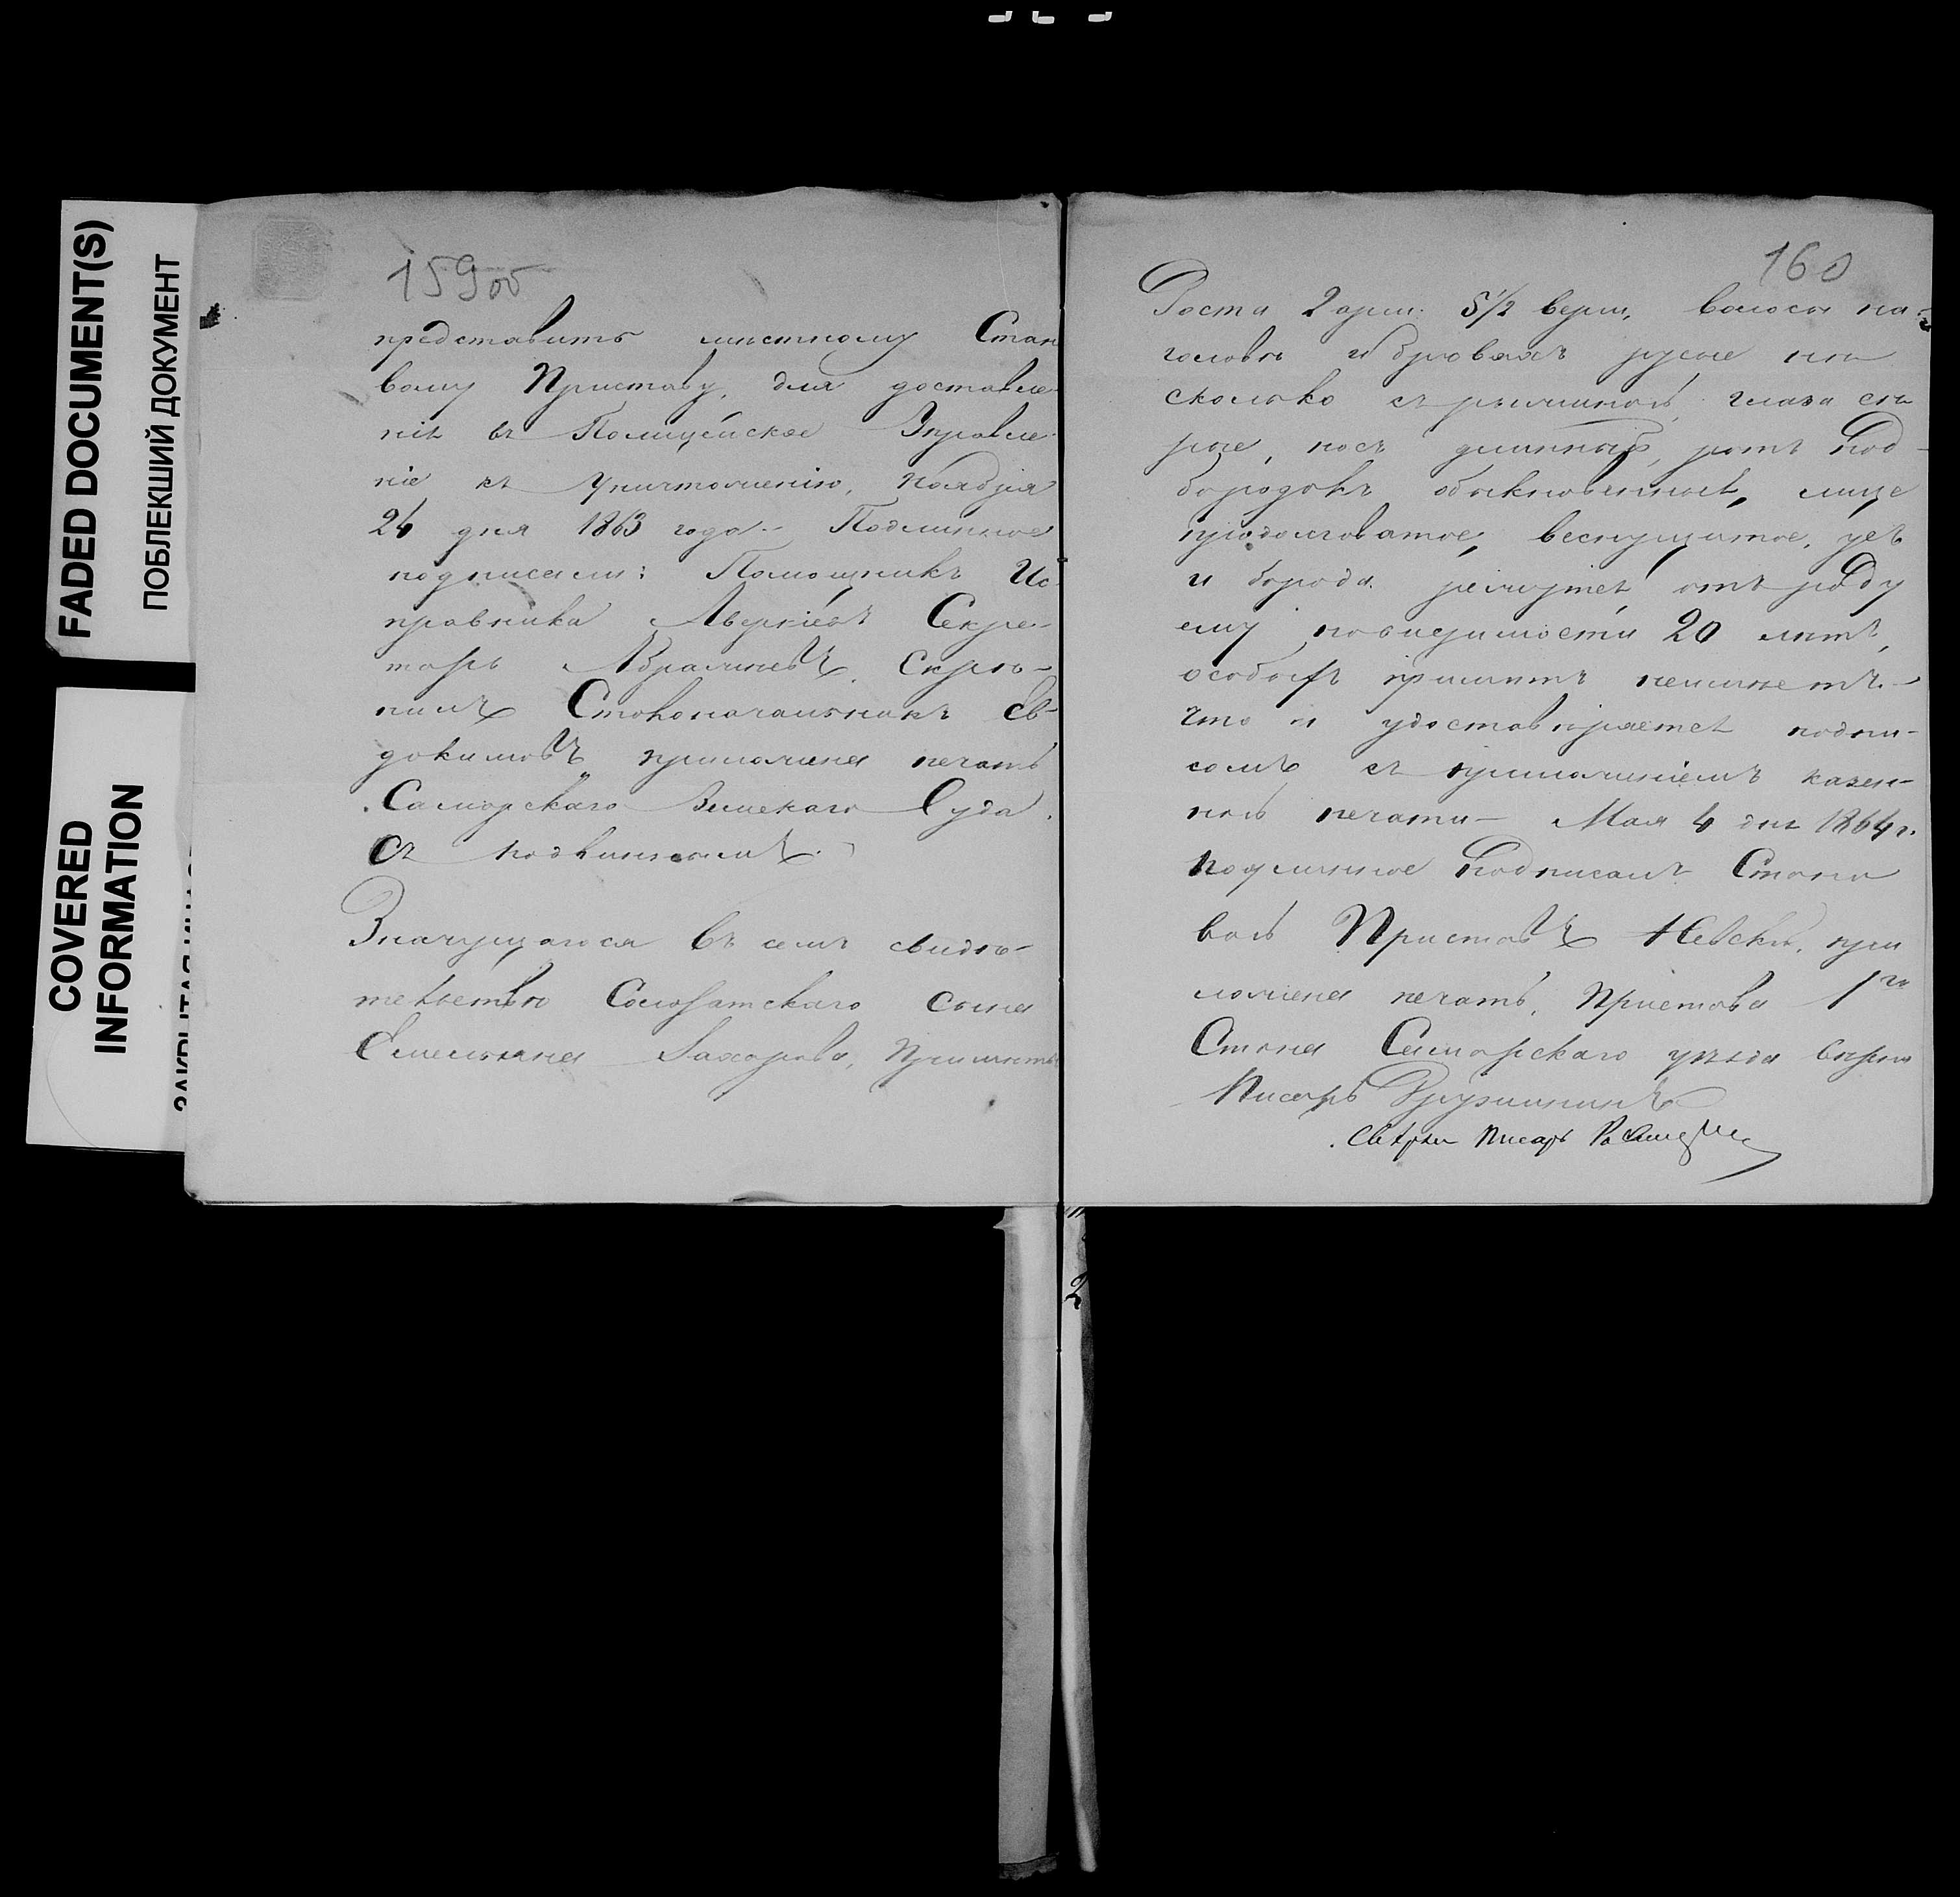 FADED DOCUMENT(S)
ПОБЛЕКШИЙ ДОКУМЕНТ
COVERED
INFORMATION
159об
представить мѣстному Стан
вому Приставу, для доставле-
нія въ Полицейское Управле-
ніе къ уничтоженію, Ноября
24 дня 1863 года - Подлинное
подписали: Помощникъ Ис-
правника Аверкіевъ Секре-
тарь Абрамычевъ, Скрѣ-
пилъ Столоначальникъ Ев-
докимовъ приложена печать
Самарскаго Земскаго Суда.
Съ подлиннымъ
Значущагося въ семъ свидѣ-
тельствѣ Солдатскаго сына
Емельяна Захарова, Примѣты
160
Роста 2 арш: 5 1/2 верш, волосы на
головѣ и бровяхъ русые нѣ
сколько съ рыжиной, глаза сѣ
рые, носъ длинный, ротъ Под-
бородокъ обыкновенные, лице
продолговатое, веснущатое, усъ
и борода режутся, отъ роду
ему по видимости 20 лѣтъ,
особыхъ примѣтъ неимѣетъ.-
что и удостовѣряется подпи-
сомъ съ приложеніемъ казен-
ной печати - Мая 4 дня 1864 г.
подлинное Подписалъ Стано
вой Приставъ Невскій, при
ложена печать, Пристава 1го
Стана Самарскаго уѣзда вѣрно
Писарь
Свѣрялъ Писарь